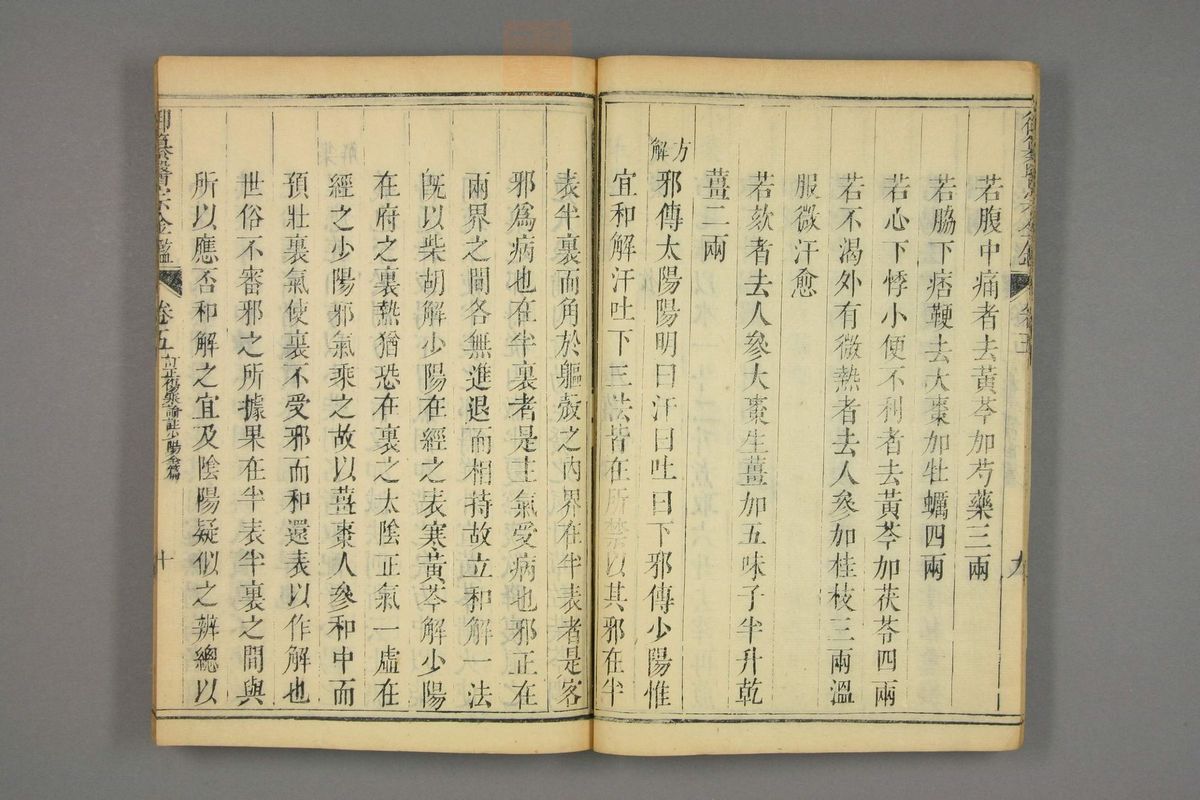 若腹中痛者去黃芩加芍藥三兩
若脇下痞鞕去大棗加牡蠣四兩
若心下悸小便不利者去黃芩加茯苓四兩
若不渴外有微熱者去人參加桂枝三兩溫
服微汗愈
若欬者去人參大棗生薑加五味子半升乾
薑二兩
方解
邪傳太陽陽明曰汗曰吐曰下邪傳少陽惟
宜和解汗吐下三法皆在所禁以其邪在半
表半裏而角於軀殼之內界在半表者是客
邪爲病也在半裏者是主氣受病也邪正在
兩界之間各無進退而相持故立和解一法
旣以柴胡解少陽在經之表寒黃芩解少陽
在府之裏熱猶恐在裏之太陰正氣一虛在
經之少陽邪氣乘之故以薑棗人參和中而
預壯裏氣使裏不受邪而和還表以作解也
世俗不審邪之所據果在半表半裏之間與
所以應否和解之宜及陰陽疑似之辨總以
御纂醫宗金鑑
卷五
訂正傷寒論註少陽全篇
十
御纂醫宗金鑑
卷五
九